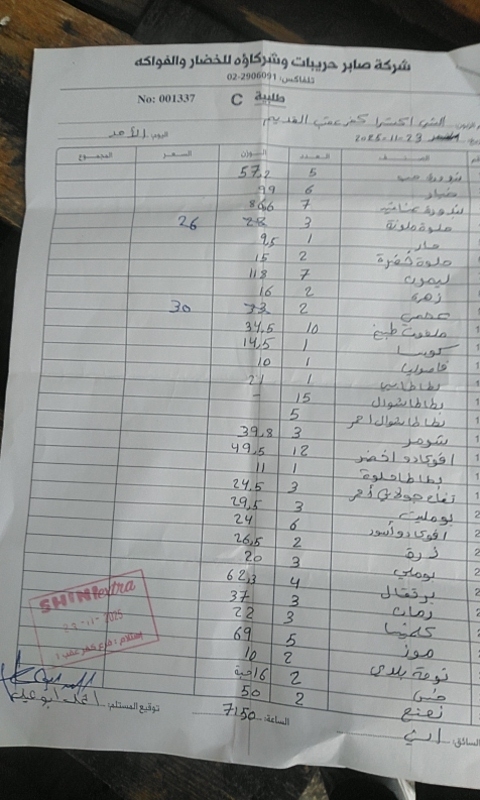 شركة صابر حريبات وشركاؤه للخضار والفواكه
تلفاكس: 02-2906091
No: 001337 طلبية C
اكسترا كفر عقب القديم
2025-11-23 اليوم: الأحد
الصنف العدد الوزن السعر المجموع
5 57,2
خيار 6 99
7 866
حلوة ملونة 3 28 26
حار 1 9,5
حلوة خضرة 2 15
ليمون 7 118
زهرة 2 16
2 33 30
ملفوف طبيخ 10 34,5
كوسا 1 14,5
فاصوليا 1 10
بطاطا 1 21
بطاطا شوال 15 -
بطاطا شوال احمر 5
شومر 3 39,8
افوكادو اخضر 12 49,5
بطاطا حلوة 1 11
تفاح احمر 3 24,5
بوملیت 3 29,5
افوكادو أسود 6 24
ذرة 2 26,5
بوملي 3 20
برتقال 4 62,3
رمان 3 37
كلمنتينا 3 22
موز 5 69
بلدي 2 10
خس 2 16 حبة
نعنع 2 50
SHINI extra
23-11-2025
استلام: فرع كفر عقب
السائق: الساعة: 7150 توقيع المستلم: